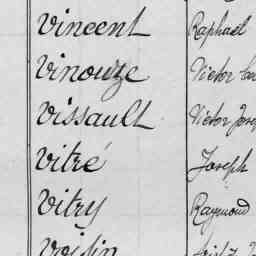 Vincent Raphaël
Vinouze Victor
Vissault Victor
Vitré Joseph
Vitry Raymond
Voisin